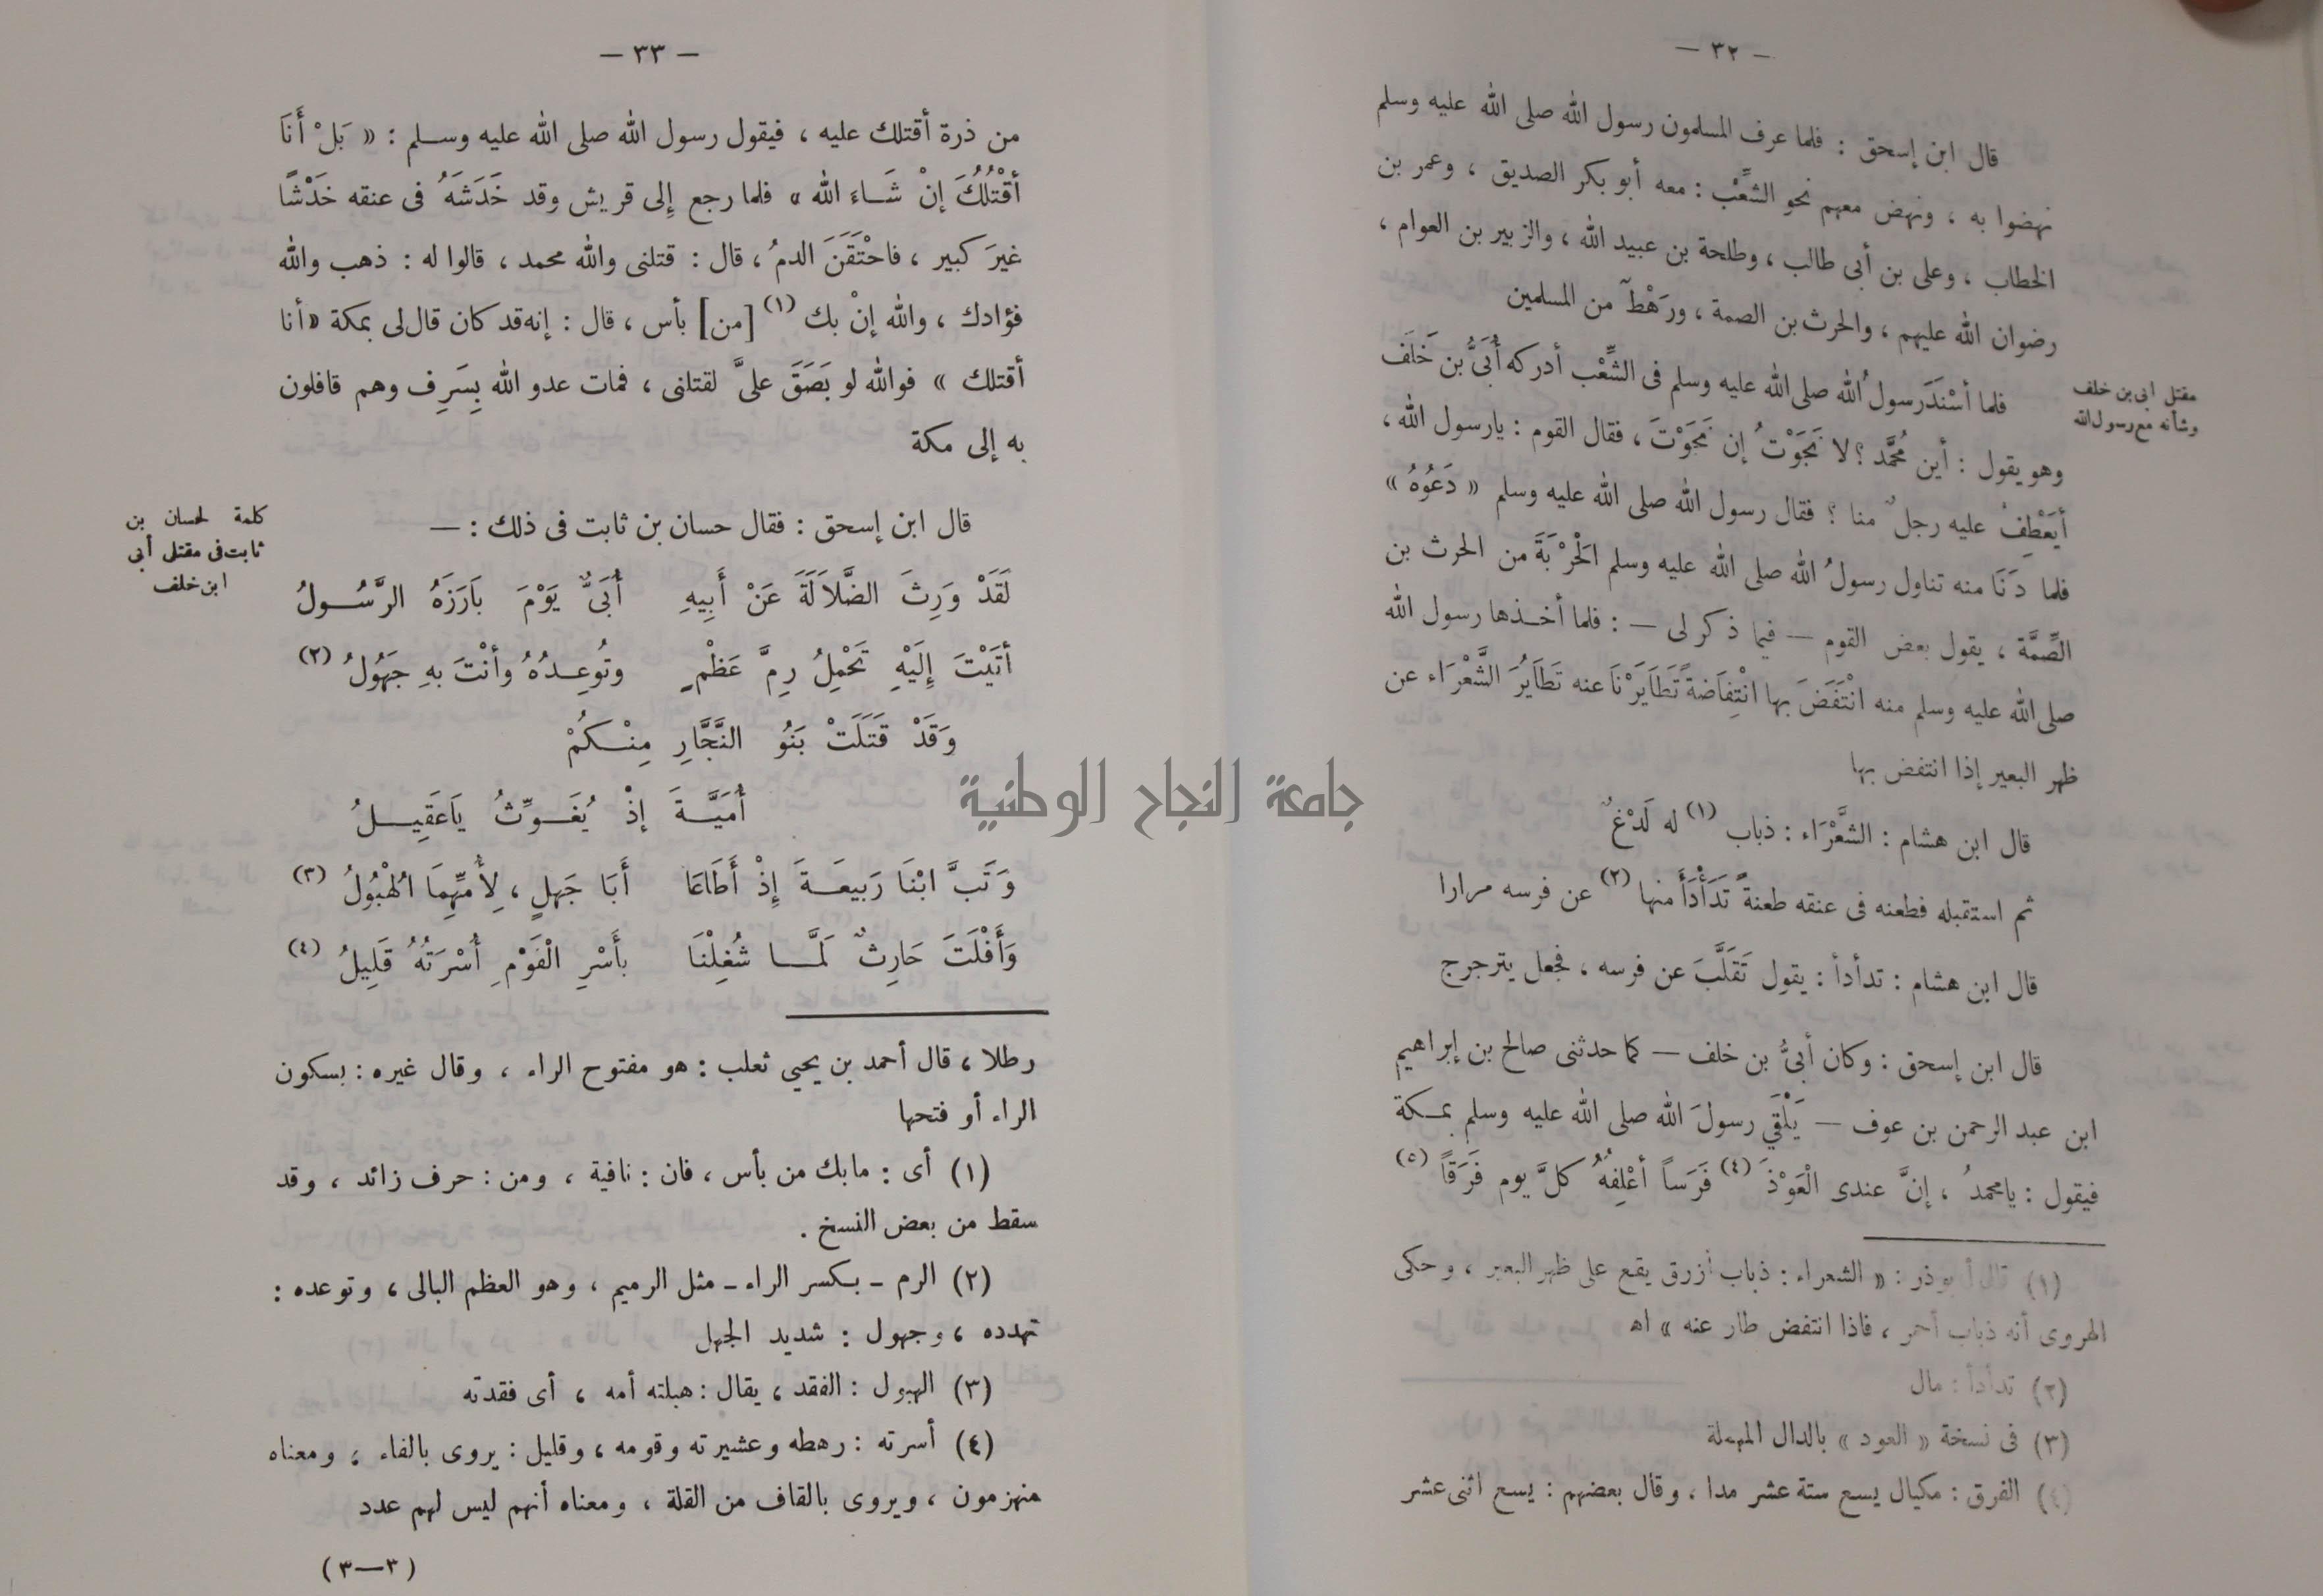 — ٣٢ —
قال ابن إسحق : فلما عرف المسلمون رسول الله صلى الله عليه وسلم
نهضوا به ، ونهض معهم نحو الشِّعْب : معه أبو بكر الصديق ، وعمر بن
الخطاب ، وعلى بن أبى طالب ، وطلحة بن عبيد الله ، والزبير بن العوام ،
رضوان الله عليهم ، والحرث بن الصمة ، ورَهْطٌ من المسلمين
فلما أسْنَدَ رسولُ الله صلى الله عليه وسلم فى الشِّعْب أدركه أُبَىُّ بن خَلَف
مقتل ابى بن خلف
وشأنه مع رسول الله
وهو يقول : أين مُحمَّد ؟ لا نَجَوْتُ إن نَجَوْتَ ، فقال القوم : يارسول الله ،
أيَعْطِفُ عليه رجلٌ منا ؟ فقال رسول الله صلى الله عليه وسلم « دَعُوهُ »
فلما دَنَا منه تناول رسولُ الله صلى الله عليه وسلم الْحَرْبَةَ من الحرث بن
الصِّمَّة ، يقول بعض القوم — فيما ذكر لى — : فلما أخذها رسول الله
صلى الله عليه وسلم منه انْتَفَضَ بها انْتِفَاضةً تَطَايَرْنَا عنه تَطَايُرَ الشَّعْرَاء عن
ظهر البعير إذا انتفض بها
قال ابن هشام : الشَّعْرَاء : ذباب (١) له لَدْغٌ
ثم استقبله فطعنه فى عنقه طعنةً تَدَأْدَأَ منها (٢) عن فرسه مرارا
قال ابن هشام : تدأدأ : يقول تَقَلَّبَ عن فرسه ، فجعل يترجرج
قال ابن إسحق : وكان أبىُّ بن خلف — كما حدثنى صالح بن إبراهيم
ابن عبد الرحمن بن عوف — يَلْقَى رسولَ الله صلى الله عليه وسلم بمكة
فيقول : يامحمدُ ، إنَّ عندى الْعَوْذَ (٤) فَرَسَاً أعْلِفُهُ كلَّ يوم فَرَقاً (٥)
(١) قال أبوذر : « الشعراء : ذباب أزرق يقع على ظهر البعير ، وحكى
الهروى أنه ذباب أحمر ، فاذا انتفض طار عنه » اه
(٢) تدأدأ : مال
(٣) فى نسخة « العود » بالدال المهملة
(٤) الفرق : مكيال يسع ستة عشر مدا ، وقال بعضهم : يسع اثنى عشر
— ٣٣ —
من ذرة أقتلك عليه ، فيقول رسول الله صلى الله عليه وسلم : « بَلْ أَنَا
أقْتُلُكَ إنْ شَاءَ الله » فلما رجع إلى قريش وقد خَدَشَهُ فى عنقه خَدْشًا
غيرَ كبير ، فاحْتَقَنَ الدمُ ، قال : قتلنى والله محمد ، قالوا له : ذهب والله
فؤادك ، والله إنْ بك (١) [من] بأس ، قال : إنه قد كان قال لى بمكة « أنا
أقتلك » فوالله لو بَصَقَ علىَّ لقتلنى ، فمات عدو الله بِسَرِف وهم قافلون
به إلى مكة
قال ابن إسحق : فقال حسان بن ثابت فى ذلك : —
كلمة لحسان بن
ثابت فى مقتل أبى
ابن خلف
لَقَدْ وَرِثَ الضَّلاَلَةَ عَنْ أَبِيهِ أُبَىٌّ يَوْمَ بَارَزَهُ الرَّسُولُ
أتَيْتَ إِلَيْهِ تَحْمِلُ رِمَّ عَظْمٍ وتُوعِدُهُ وأنْتَ بهِ جَهُولُ (٢)
وَقَدْ قَتَلَتْ بَنُو النَّجَّارِ مِنْكُمْ
أُمَيَّةَ إذْ يُغَوِّثُ يَاعَقِيلُ
وَتَبَّ ابْنَا رَبيعَةَ إذْ أطَاعَا أَبَا جَهلٍ ، لِأُمِّهِمَا الْهُبُولُ (٣)
وَأَفْلَتَ حَارِثٌ لَمَّا شُغِلْنَا بأَسْرِ الْقَوْمِ أُسْرَتُهُ قَلِيلُ (٤)
رطلا ، قال أحمد بن يحيى ثعلب : هو مفتوح الراء ، وقال غيره : بسكون
الراء أو فتحها
(١) أى : مابك من بأس ، فان : نافية ، ومن : حرف زائد ، وقد
سقط من بعض النسخ .
(٢) الرم - بكسر الراء - مثل الرميم ، وهو العظم البالى ، وتوعده :
تهدده ، وجهول : شديد الجهل
(٣) الهبول : الفقد ، يقال : هبلته أمه ، أى فقدته
(٤) أسرته : رهطه وعشيرته وقومه ، وقليل : يروى بالفاء ، ومعناه
منهزمون ، ويروى بالقاف من القلة ، ومعناه أنهم ليس لهم عدد
(٣—٣)
جامعة النجاح الوطنية